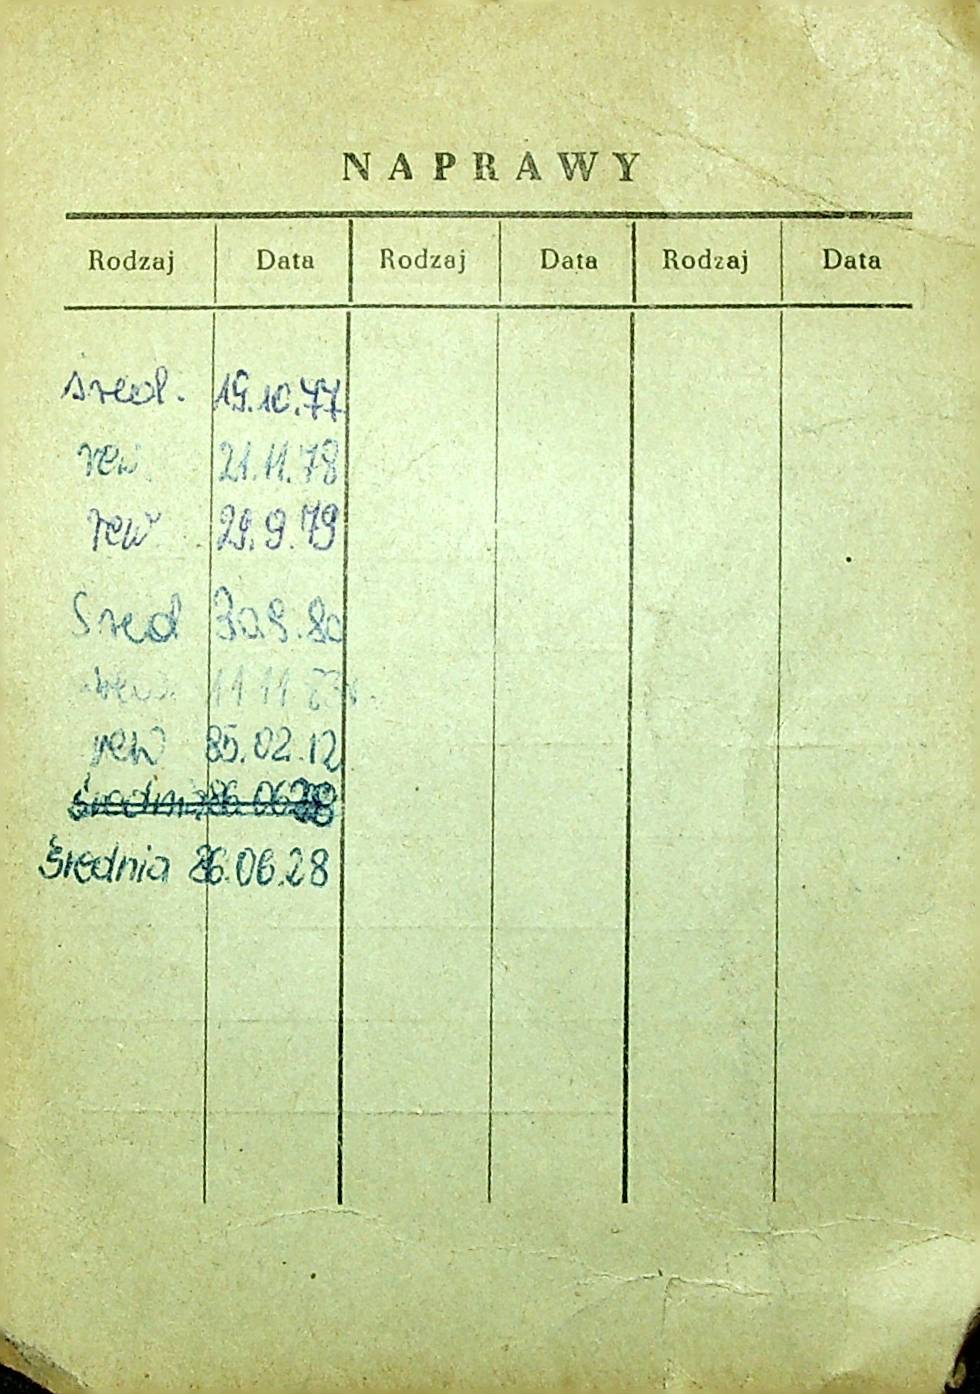 NAPRAWY
Rodzaj Data Rodzaj Data Rodzaj Data
średl. 19.10.77
rew 21.11.78
rew 29.9.79
Sred 30.9.80
11 11
rew 85.02.12
średnia 86.06.28
średnia 86.06.28